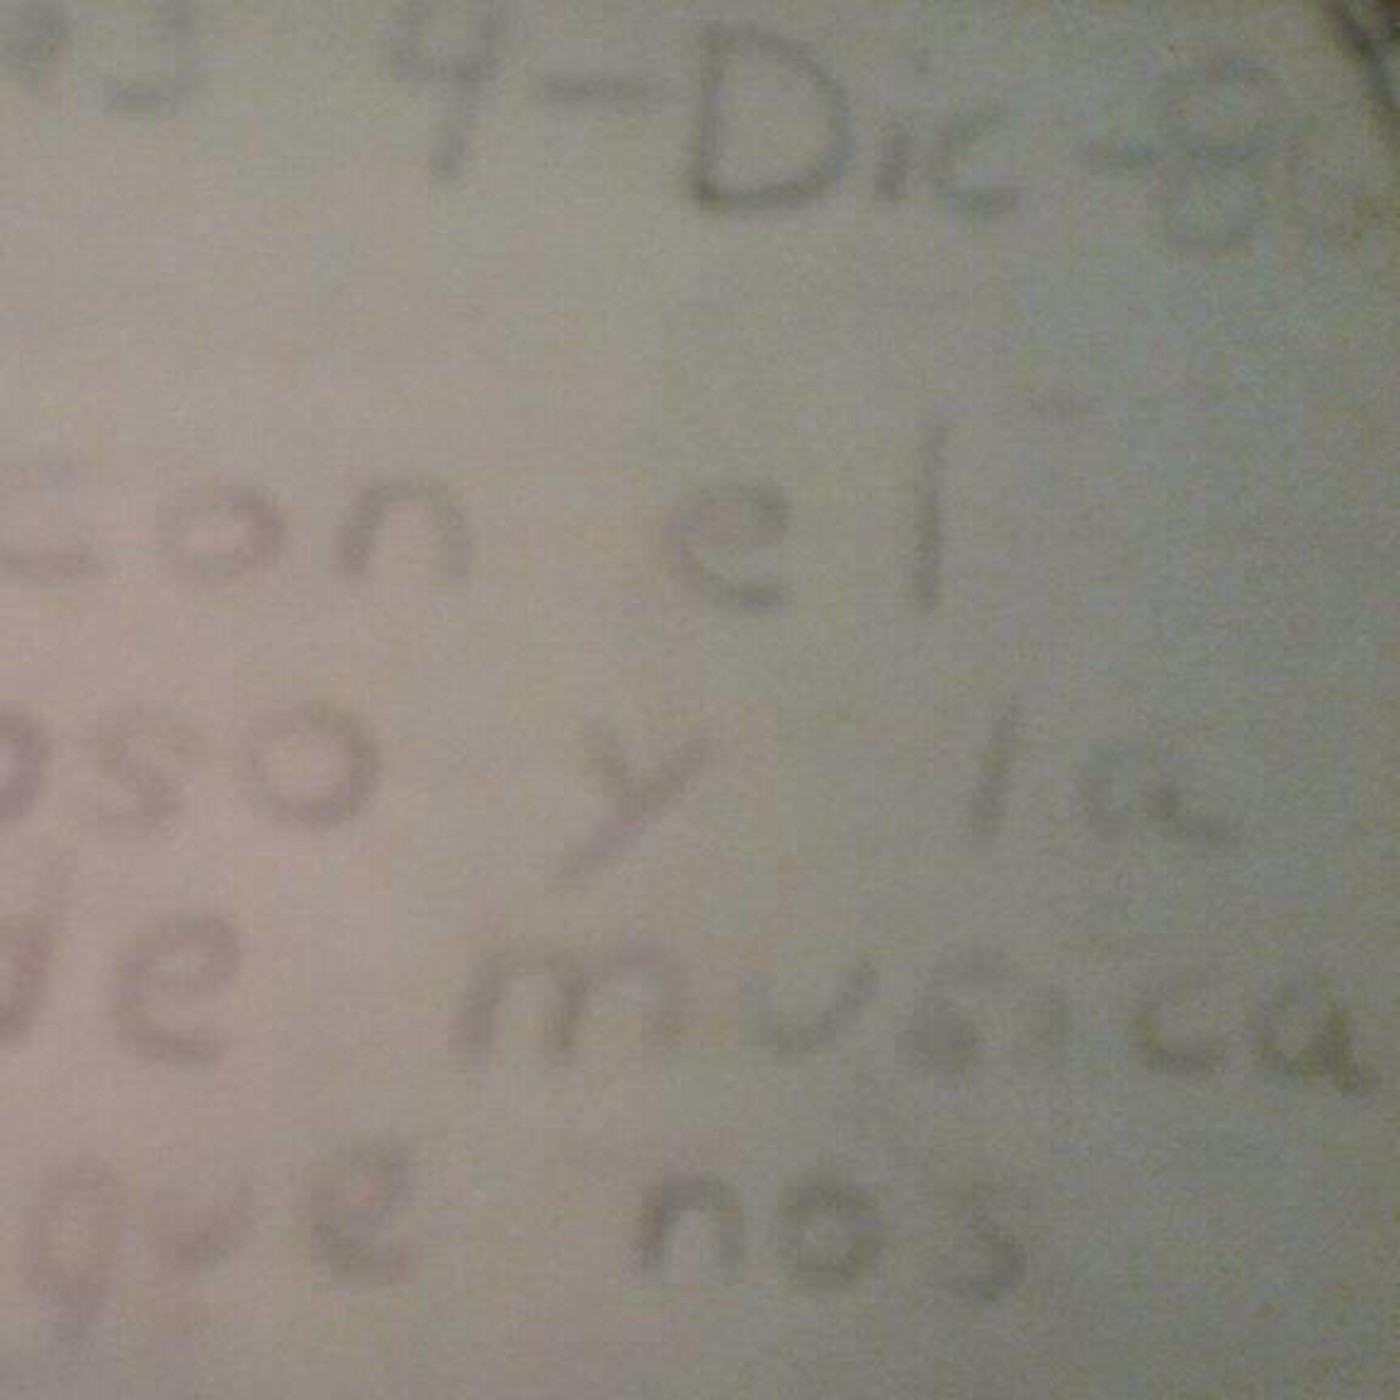 4-Dic-8
con el
oso y la
de musica
que nos